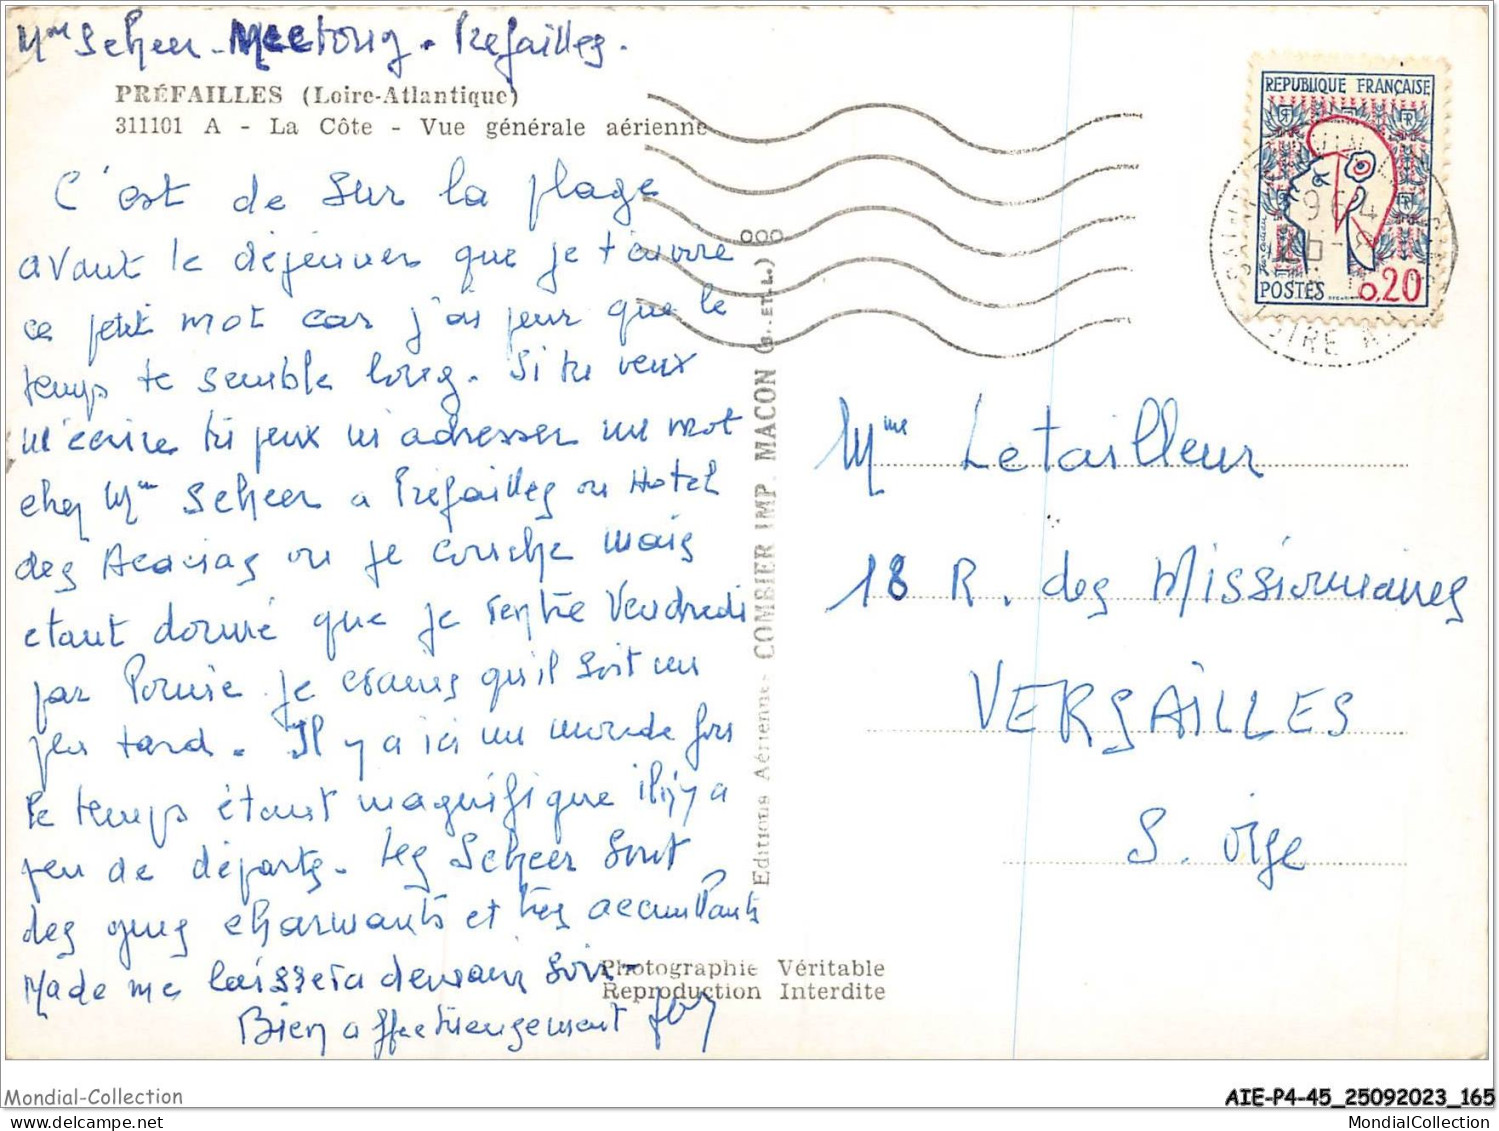 Mme Scheer - - Prefailles.
PRÉFAILLES (Loire-Atlantique)
311101 A - La Côte - Vue générale aérienne
C'est de sur la plage
avant le déjeuner que je t'envoie
ce petit mot car j'ai peur que le
temps te semble long. Si tu veux
m'écrire tu peux m'adresser un mot
chez Mme Scheer a Prefailles ou Hotel
des Acacias ou je couche mais
etant donné que je rentre Vendredi
par Pornic je crains qu'il soit un
peu tard. Il y a ici un monde fou
le temps étant magnifique il n'y a
peu de départs. les Scheer sont
des gens charmants et très accueillants
Made me laissera demain soir -
Bien affectueusement
Editions Aériennes COMBIER IMP. MACON (S.-ET-L.)
Photographie Véritable
Reproduction Interdite
REPUBLIQUE FRANÇAISE
1964
POSTES 0,20
LOIRE
Mme Letailleur
18 R. des Missionnaires
VERSAILLES
S. oise
Mondial-Collection
AIE-P4-45_25092023_165
MondialCollection